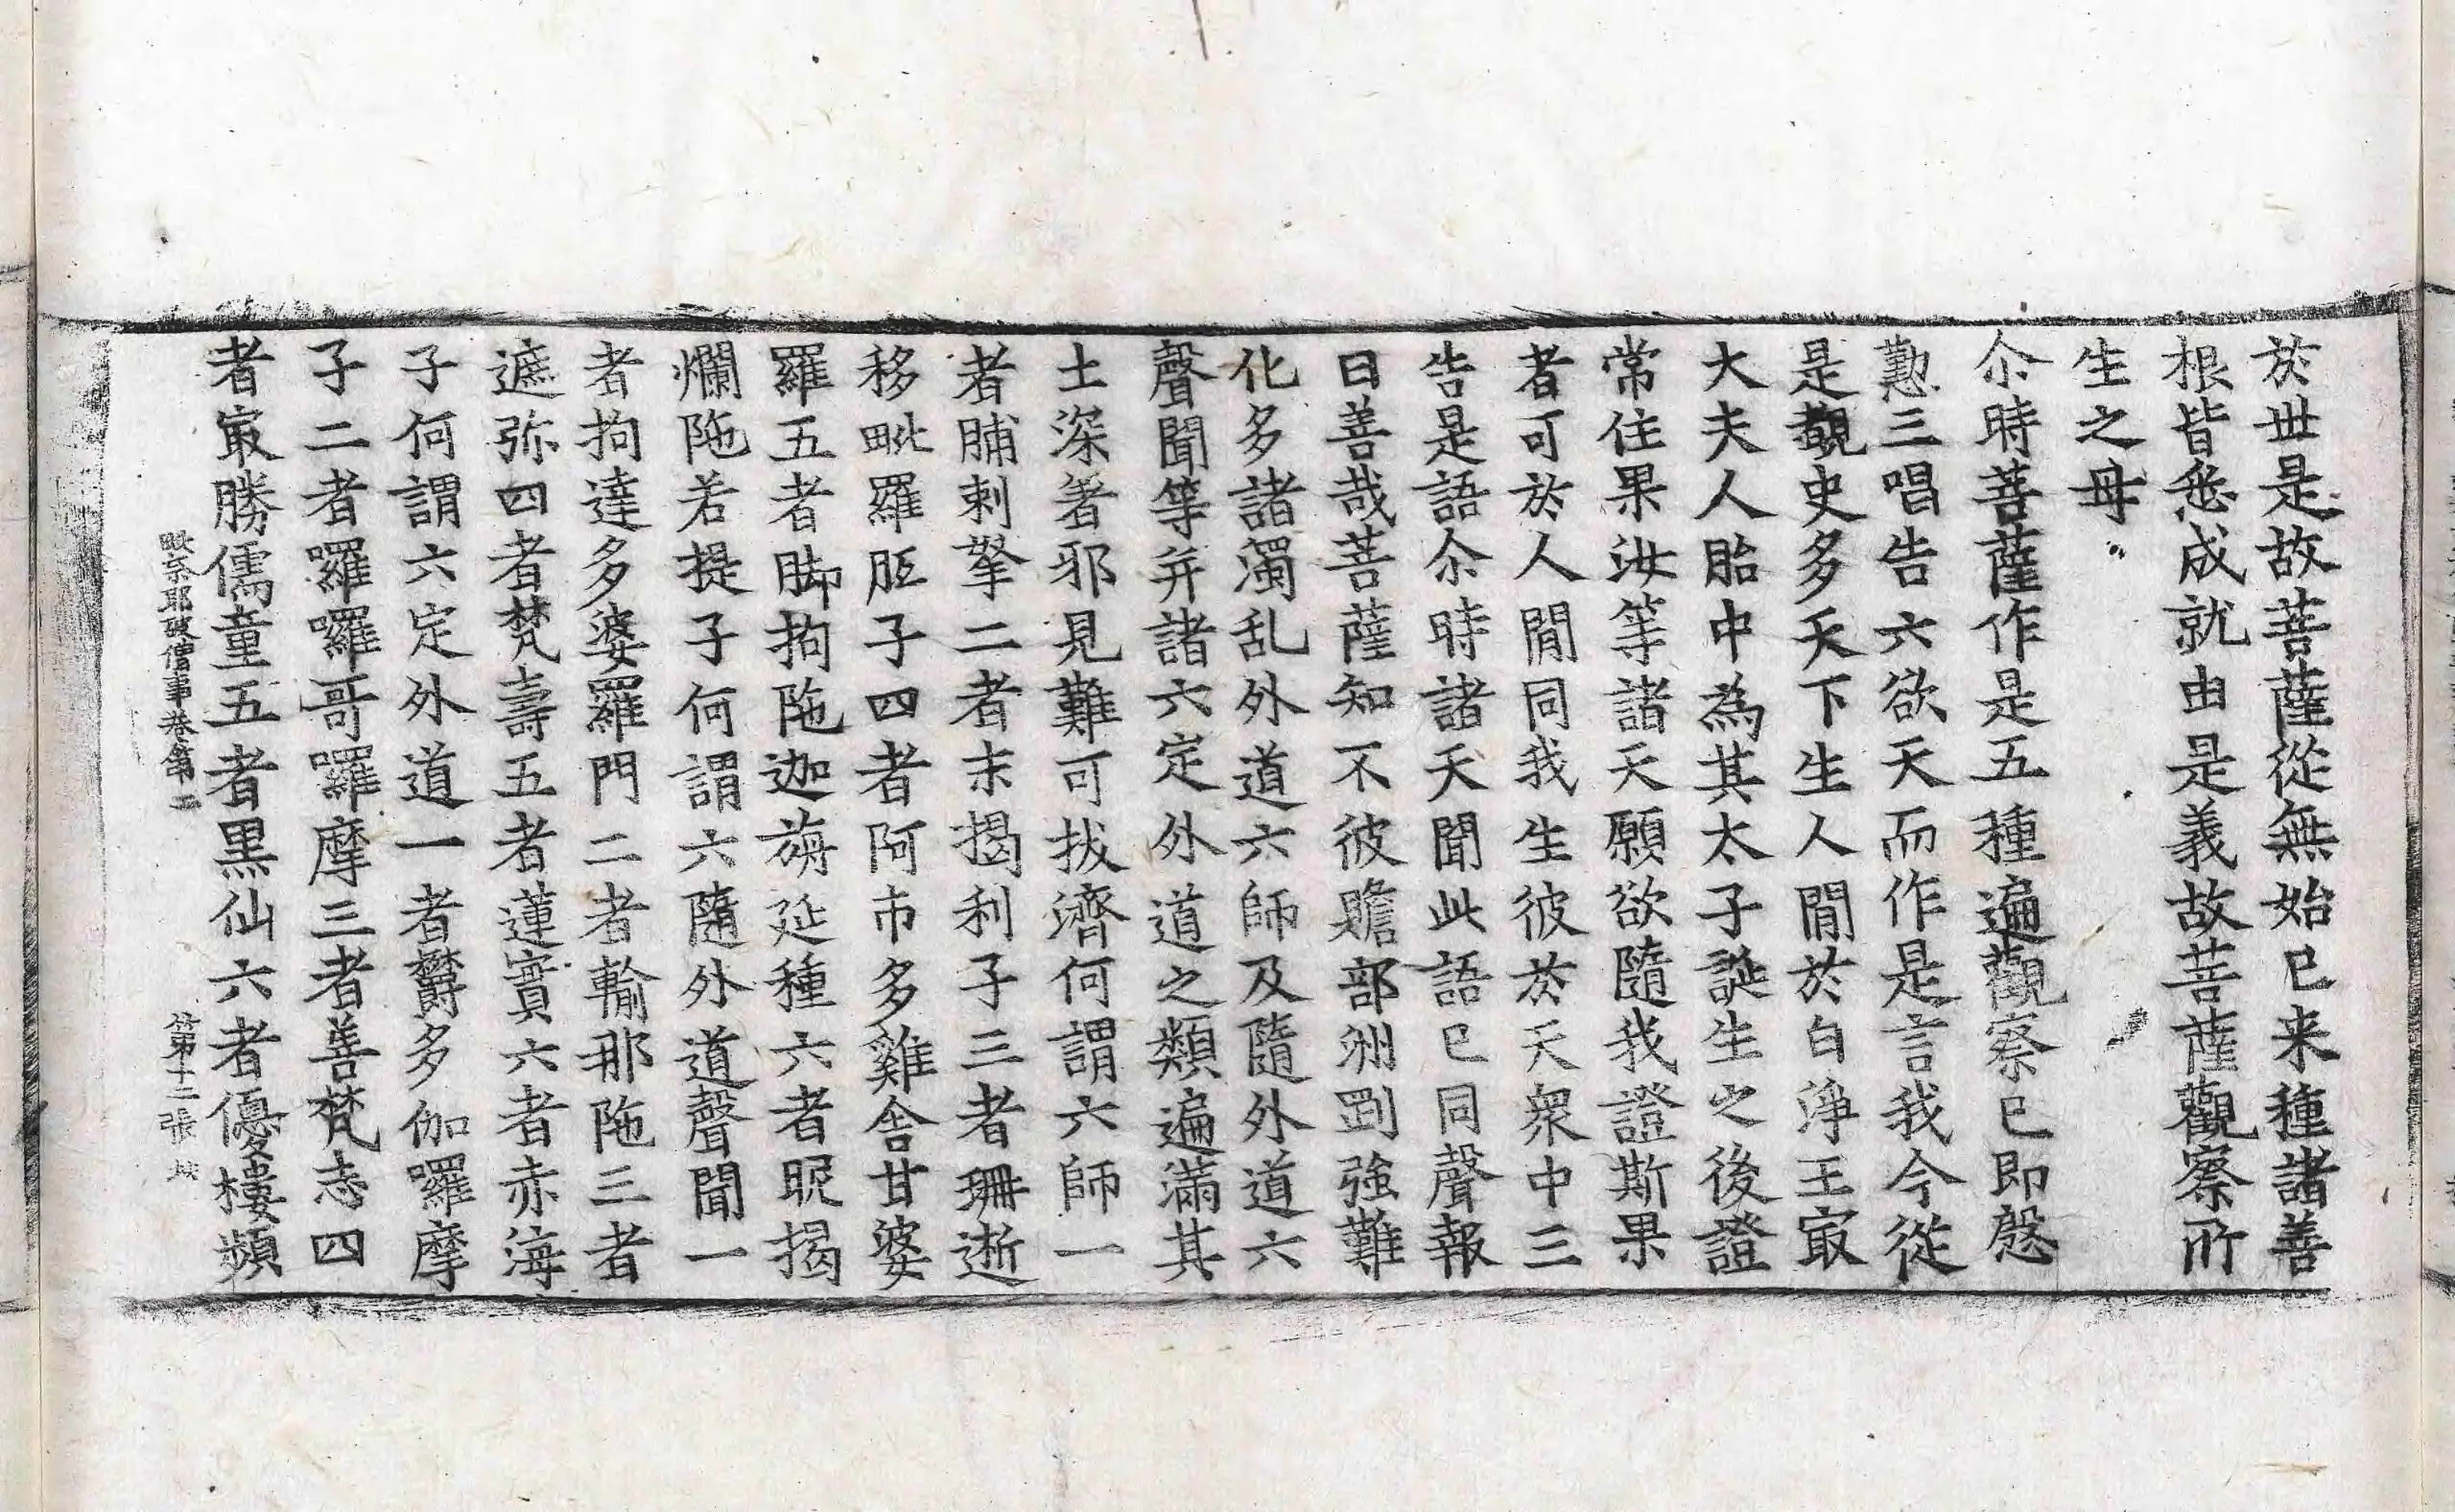 於丗是故菩薩從無始已来種諸善
根皆悉成就由是義故菩薩觀察所
生之母
尒時菩薩作是五種遍觀察已即慇
懃三唱告六欲天而作是言我今從
是覩史多天下生人間於白淨王㝡
大夫人胎中為其太子誕生之後證
常住果汝等諸天願欲隨我證斯果
者可於人間同我生彼於天衆中三
告是語尒時諸天聞此語已同聲報
曰善哉菩薩知不彼贍部洲剛強難
化多諸濁乱外道六師及隨外道六
聲聞等并諸六定外道之類遍滿其
土深著邪見難可拔濟何謂六師一
者脯剌拏二者末揭利子三者珊逝
移毗羅胝子四者阿市多雞舍甘婆
羅五者脚拘陁迦旃延種六者昵揭
爛陁若提子何謂六隨外道聲聞一
者拘達多婆羅門二者輸那陁三者
遮弥四者梵壽五者蓮實六者赤海
子何謂六定外道一者欝多伽囉摩
子二者囉囉哥囉摩三者善梵志四
者㝡勝儒童五者黒仙六者優樓頻
毗奈耶破僧事卷第二 第十二張